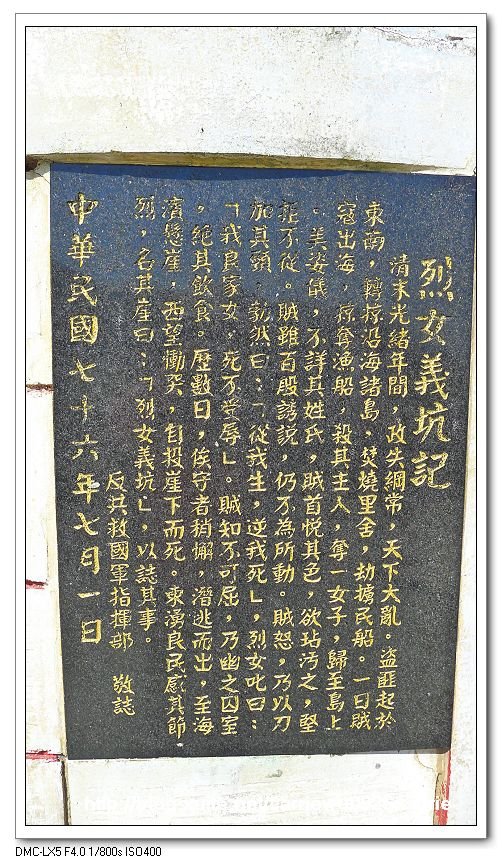 烈女義坑記
清末光緒年間，政失綱常，天下大亂。盜匪起於
東南，轉掠沿海諸島，焚燒里舍，劫擄民船。一日賊
寇出海，掠奪漁船，殺其主人，奪一女子，歸至島上
。美姿儀，不詳其姓氏，賊首悦其色，欲玷汚之，堅
拒不從。賊雖百般誘説，仍不為所動。賊怒，乃以刀
加其頸，勃然曰：「從我生，逆我死」，烈女叱曰：
「我良家女，死不受辱」。賊知不可屈，乃幽之囚室
，絕其飲食。歷數日，俟守者稍懈，潛逃而出，至海
濱懸崖，西望慟哭，自投崖下而死。東湧良民感其節
烈，名其崖曰：「烈女義坑」，以誌其事。
反共救國軍指揮部 敬誌
中華民國七十六年七月一日
DMC-LX5 F4.0 1/800s ISO400